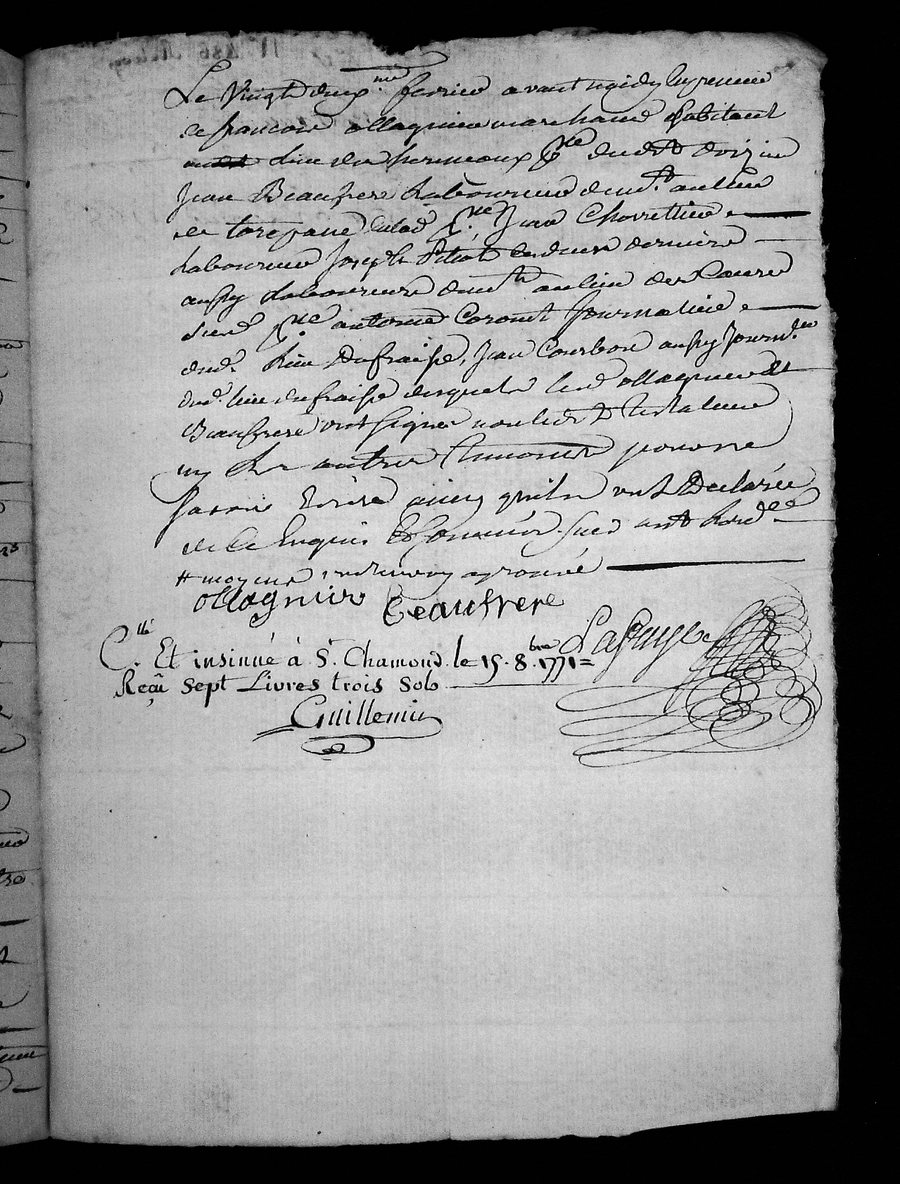 Le vingt deux.me fevrier avant midy en presence
de francois ollagnier marchand habitant
lieu des hermeaux p.sse dudt doizieu
Jean Beaufrere Laboureur demt. au lieu
de lad p.sse, Jean Chorellier
Laboureur Joseph
aussy Laboureur demt au lieu de
p.sse antoine Coront Journalier
dud. Lieu Dufraisse, Jean Courbon aussy Journ.lier
dud. lieu dufraisse desquels led ollagnier et
Beaufrere ont signé non led testateur
ny les autres temoins pour ne
scavoir Ecrire ainsy quils ont Declarée
de ce Enquis & sommés
# moyens approuvé
ollagnier Beaufrere
C.llé Et insinué à St. Chamond. le 15. 8.bre 1771 = Lafarge
Reçu Sept Livres trois Sols
Guillemin